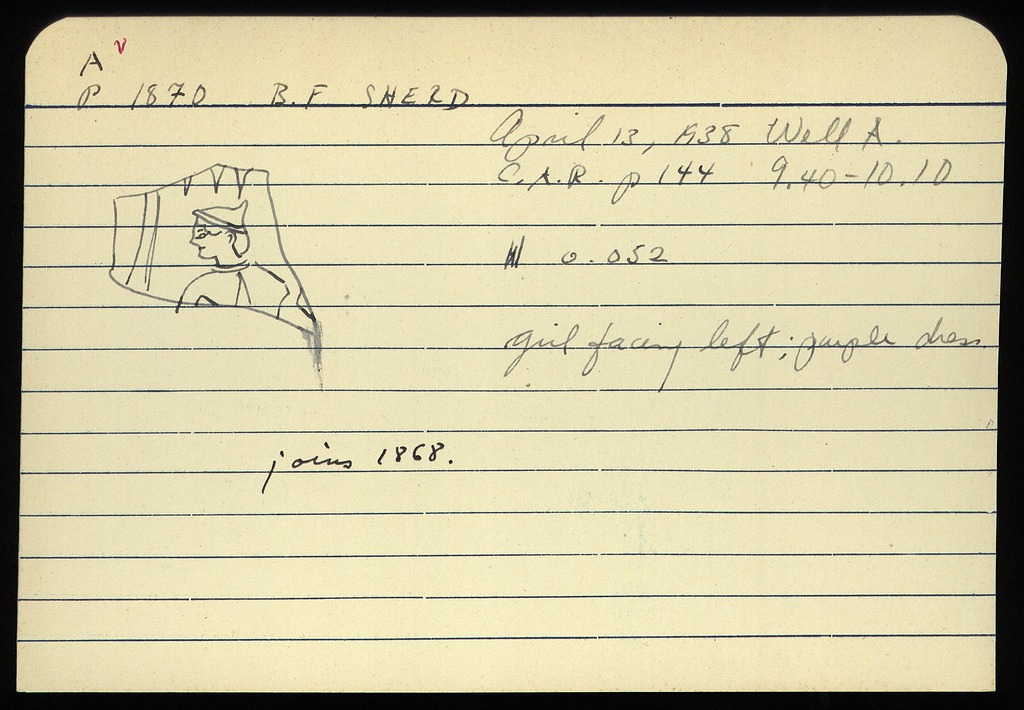 A v
P 1870 B.F SHERD
April 13, 1938 Well A.
C.A.R. p 144 9.40-10.10
W 0.052
girl facing left; purple dress.
joins 1868.